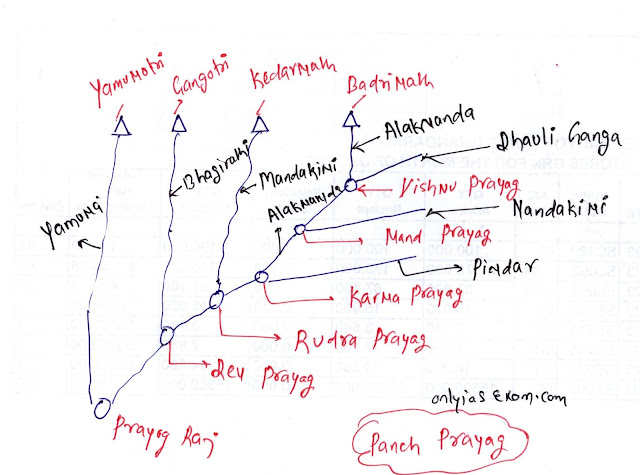 Yamunotri
Gangotri
Kedarnath
Badrinath
Alaknanda
Dhauli Ganga
Bhagirathi
Mandakini
Alaknanda
Vishnu Prayag
Nandakini
Yamuna
Nand Prayag
Pindar
Karna Prayag
Rudra Prayag
Dev Prayag
Prayag Raj
onlyiasexam.com
Panch Prayag